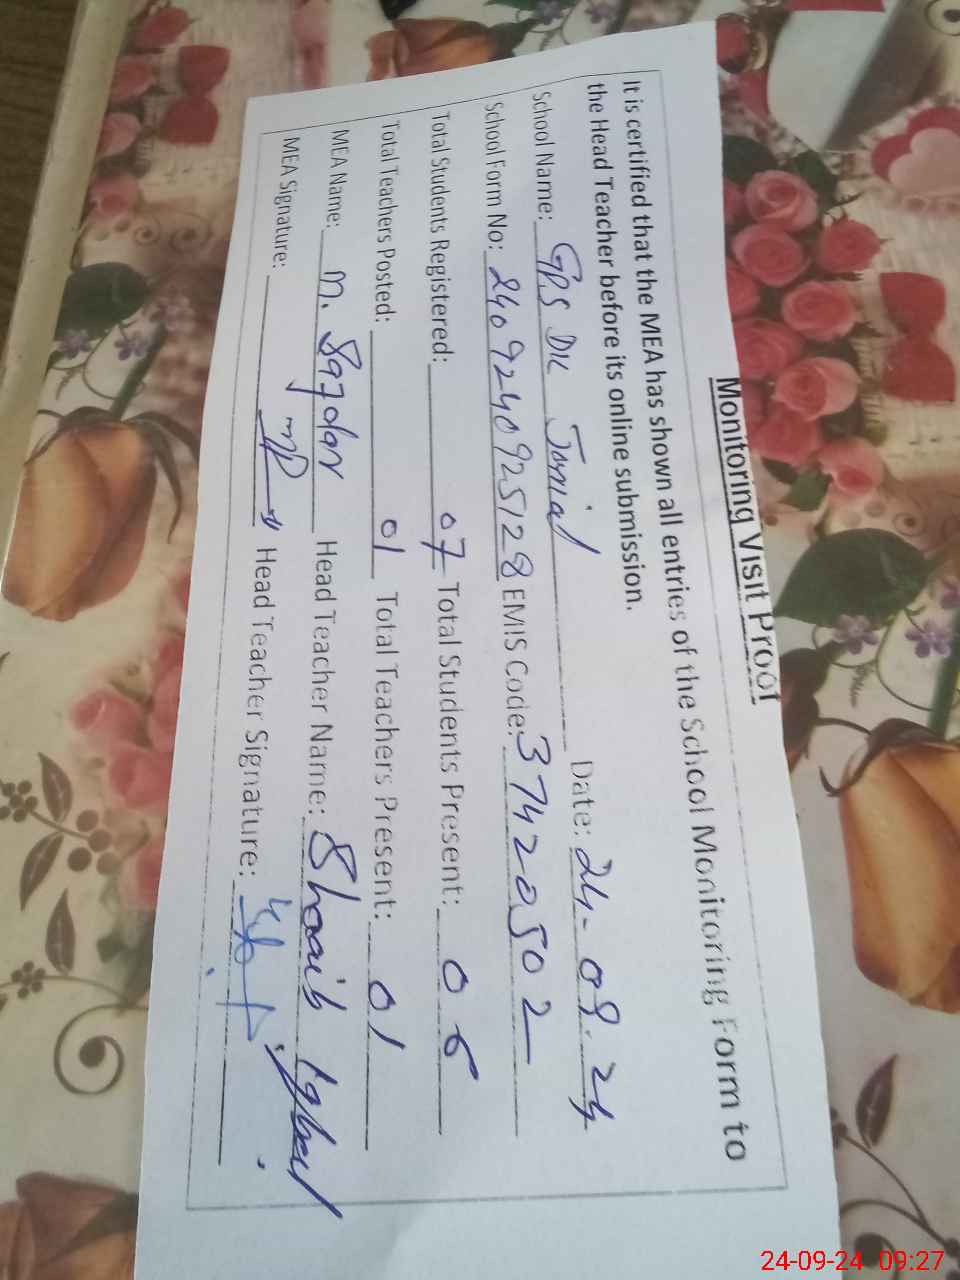 Monitoring Visit Proof
It is certified that the MEA has shown all entries of the School Monitoring Form to
the Head Teacher before its online submission.
School Name: GPS DK Jamal Date: 24-09-24
School Form No: 2409240925128 EMIS Code: 37420502
Total Students Registered: 07 Total Students Present: 06
Total Teachers Posted: 01 Total Teachers Present: 01
MEA Name: M. Sajdar Head Teacher Name: Shoaib Iqbal
MEA Signature: Head Teacher Signature:
24-09-24 09:27